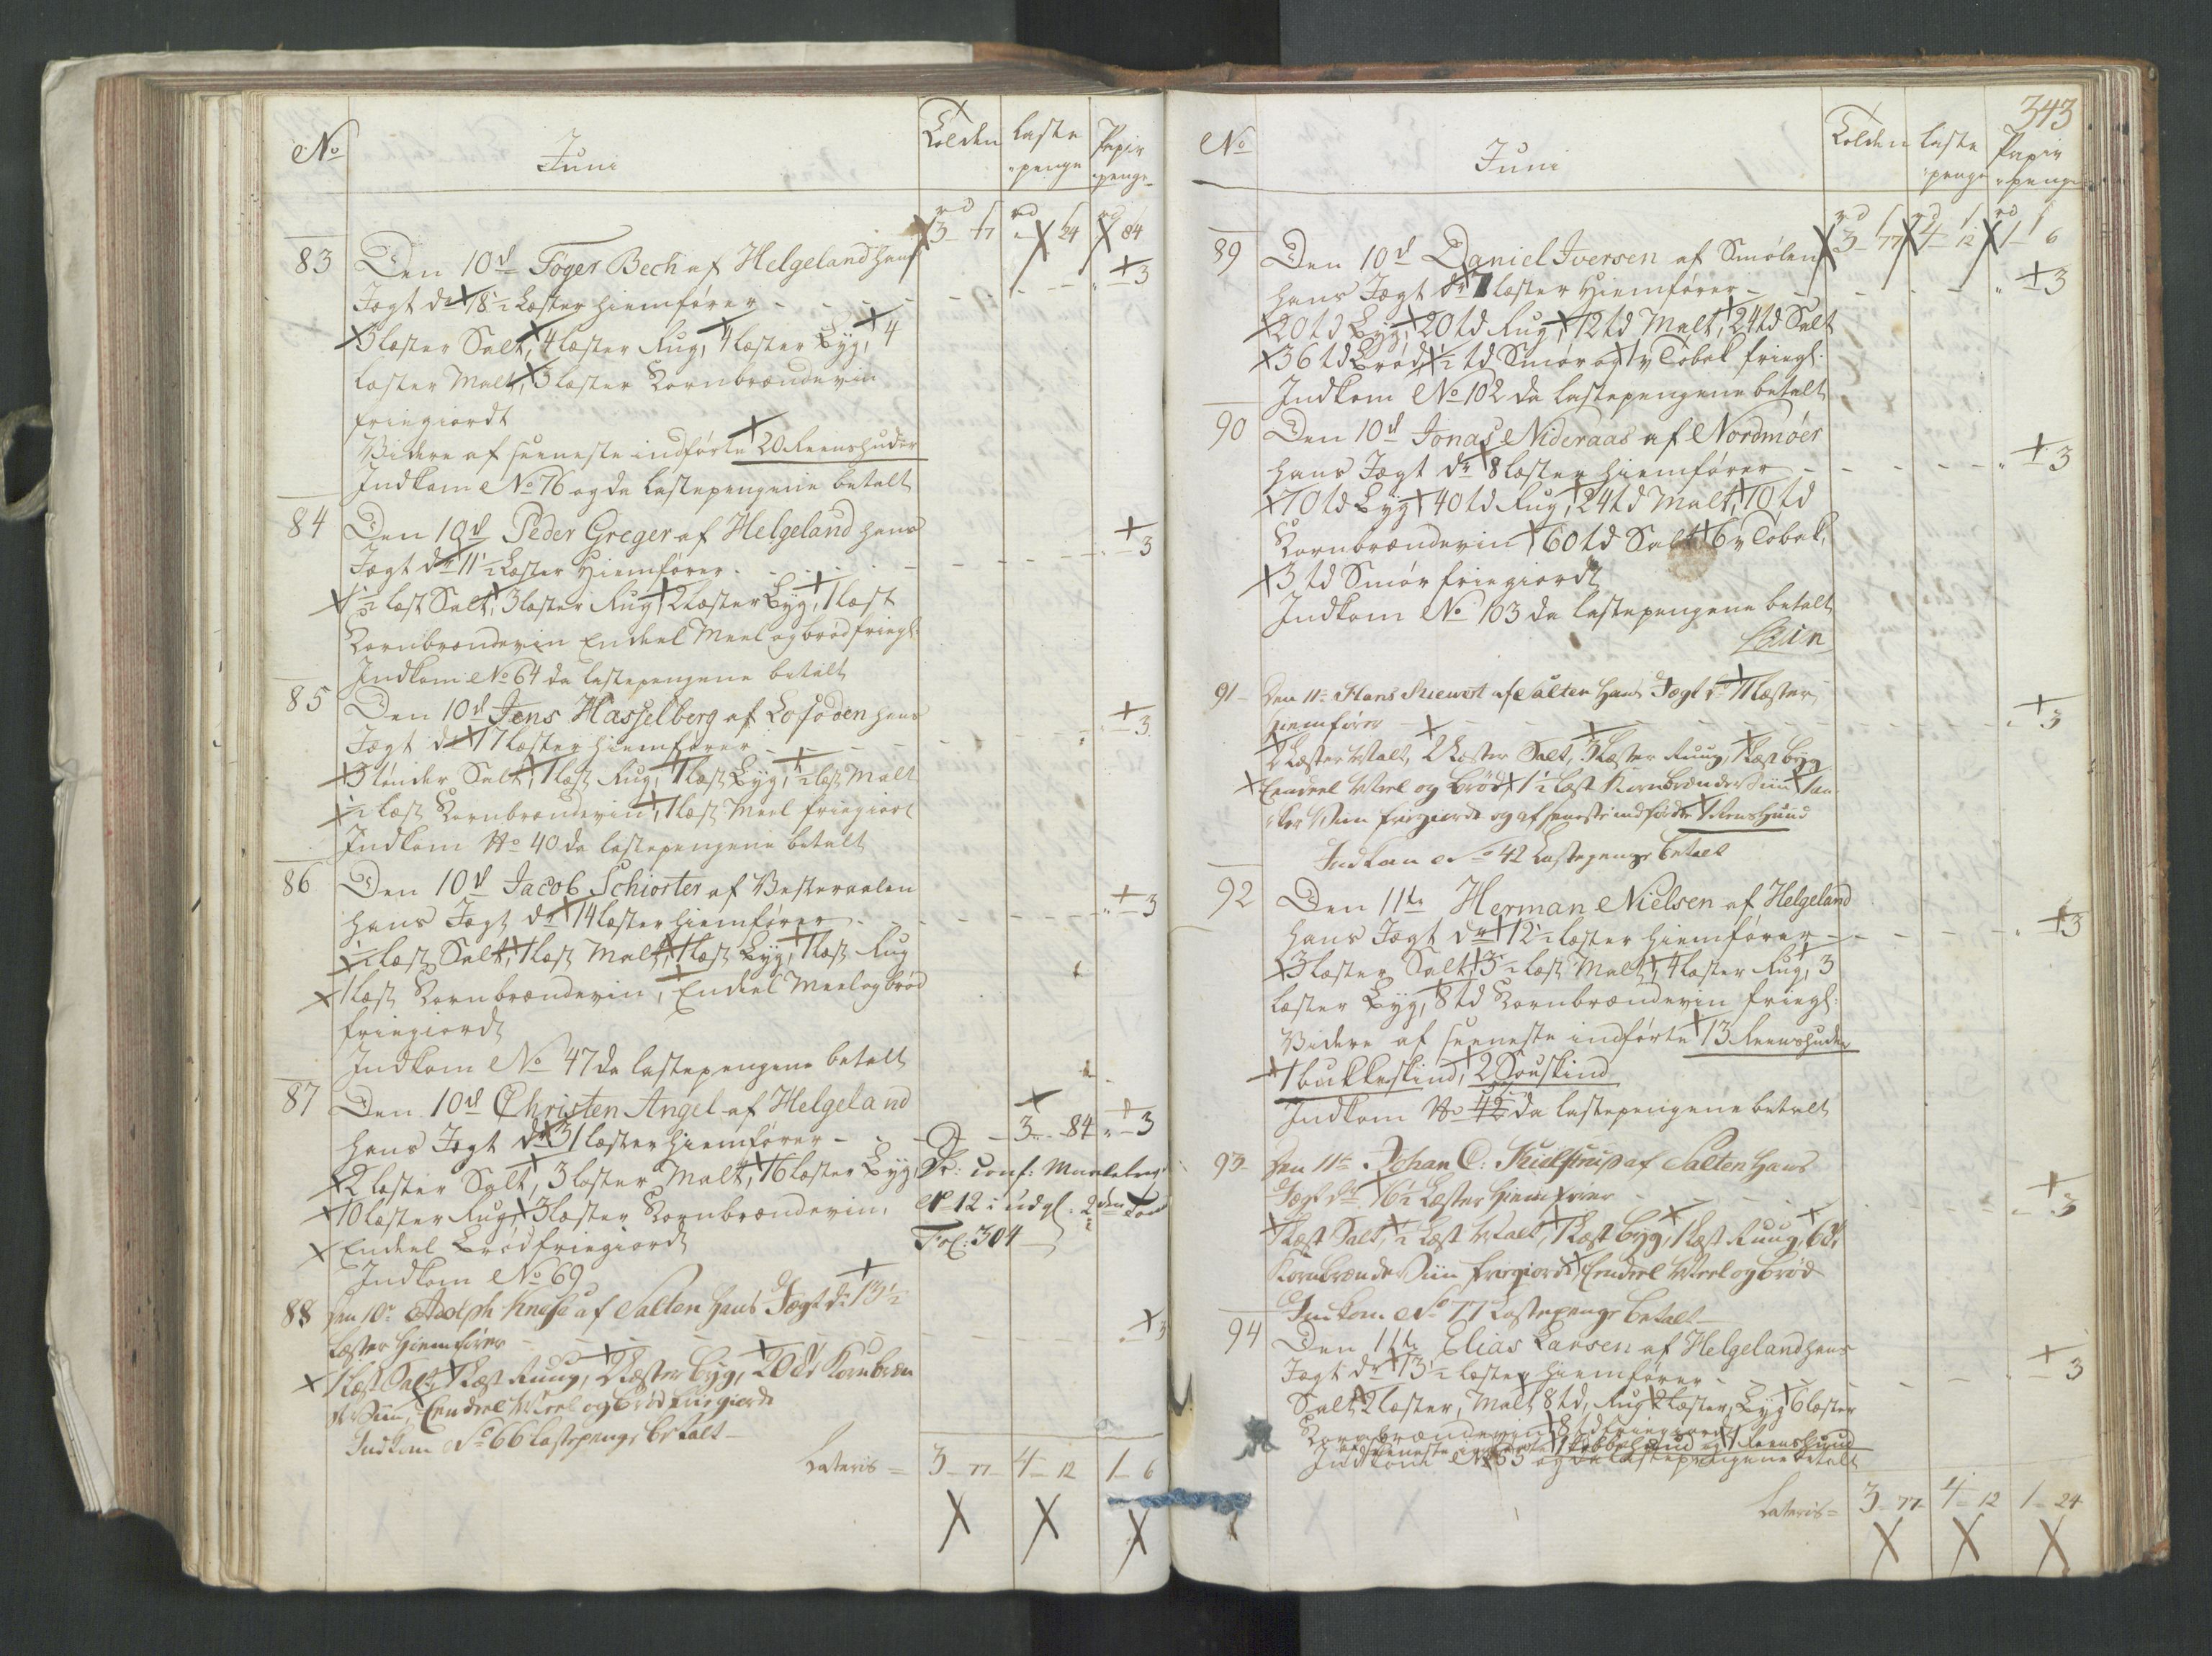 No
Juni
Tolden
Laste
penge
Papir
penge
rd 3 - 77
rd " - 24
rd " 84
83 Den 10d Foger Bech af Helgeland hans
Jægt dr 18 1/2 Læster hiemfører - - - " - 3
3 læster Salt, 4 læster Rug, 4 læster Byg, 4
læster Malt, 3 læster Kornbrændevin
friegiordt
Videre af seeneste indførte 20 Reenshuder
Indkom No 76 og da lastepengene betalt
84 Den 10d Peder Greger af Helgeland hans
Jægt dr 11 1/2 Læster Hiemfører - - - " - 3
1 1/2 læst Salt, 3 læster Rug, 2 læster Byg, 1 læst
Kornbrændevin Endeel Meel og brød friegl:
Indkom No 64 da lastepengene betalt
85 Den 10d Jens Hasselberg af Lofoden hans
Jægt dr 17 læster hiemfører - - - " - 3
3 tønder Salt, 1 læst Rug, 1 læst Byg, 1/2 læst Malt
1/2 læst Kornbrændevin, 1 læst Meel friegiort
Indkom No 40 da lastepengene betalt
86 Den 10d Jacob Schiorter af Vesteraalen
hans Jægt dr 14 læster hiemfører - - - " - 3
1/2 læst Salt, 1 læst Malt, 1 læst Byg, 1 læst Rug
1 læst Kornbrændevin, Endeel Meel og brød
friegiordt
Indkom No 47 da lastepengene betalt
87 Den 10d Christen Angel af Helgeland
hans Jægt dr 31 læster hiemfører - - 3 - 84 " - 3
2 læster Salt, 3 læster Malt, 16 læster Byg
10 læster Rug, 3 læster Kornbrændevin,
Endeel Brød friegiordt
Indkom No 69
No 12 i udgl: 2den
Fol: 304
88 Den 10d Adolph Knese af Salten hans Jægt dr 13 1/2
Læster hiemfører - - - " - 3
1 Læst Salt, 1 Læst Ruug, 2 Læster Byg, 20 td Kornbræn
deViin, Eendeel Meel og brød friegiordt
Indkom No 66 lastepenge betalt
Lateris = 3 - 77 - 4 - 12 1 - 6
343
No
Juni
Tolden
Laste
penge
Papir
penge
rd 3 - 77
rd 4 - 12
rd 1 - 6
89 Den 10d Daniel Iversen af Smølen
hans Jægt dr 7 læster Hiemfører - - - " - 3
20 td Byg, 20 td Rug, 12 td Malt, 24 td Salt
36 td Brød, 1/2 td Smør og 1 v Tobak friegl:
Indkom No 102 da lastepengene betalt
90 Den 10d Jonas Nideraas af Nordmøer
hans Jægt dr 8 læster hiemfører - - - " - 3
70 td Byg, 40 td Rug, 24 td Malt, 10 td
Kornbrændevin, 60 td Salt, 6 v Tobak,
3 td Smør friegiordt
Indkom No 103 da lastepengene betalt
91 Den 11te Hans af Salten hans Jægt dr 11 læster
hiemfører - - - " - 3
2 Læster Malt, 2 Læster Salt, 3 Læster Ruug, 1 Læst byg
Eendeel Meel og brød, 1 1/2 læst KornbrændeViin, 1 an-
ker Viin friegiordt og af seneste indførte 1 Reenshuud
Indkom No 42 Lastepenge betalt
92 Den 11te Herman Nielsen af Helgeland
hans Jægt dr 12 1/2 læster hiemfører - - - " - 3
3 læster Salt, 3 1/2 læst Malt, 4 læster Rug, 3
læster Byg, 8 td Kornbrændevin friegl:
Videre af seeneste indførte 13 Reenshuder
1 bukkeskind, 2 Souskind
Indkom No da lastepengene betalt
93 Den 11te Johan C: af Salten hans
Jægt dr 16 1/2 Læster hiemfører - - - " - 3
1 Læst Salt, 1/2 Læst Malt, 1 Læst byg, 1 Læst Ruug, 6 td
KornbrændeViin friegiordt, Eendeel Meel og brød
Indkom No 77 Lastepenge betalt
94 Den 11te Elias Larsen af Helgeland hans
Jægt dr 13 1/2 læster hiemfører - - - " - 3
Salt 2 læster, Malt 8 td, Rug 2 læster, Byg 6 læster
Kornbrændevin 8 td friegiordt
af seeneste indførte 1 Kobbehuud og 1 Reenshuud
Indkom No 55 og da lastepengene betalt
Lateris = 3 - 77 - 4 - 12 1 - 24